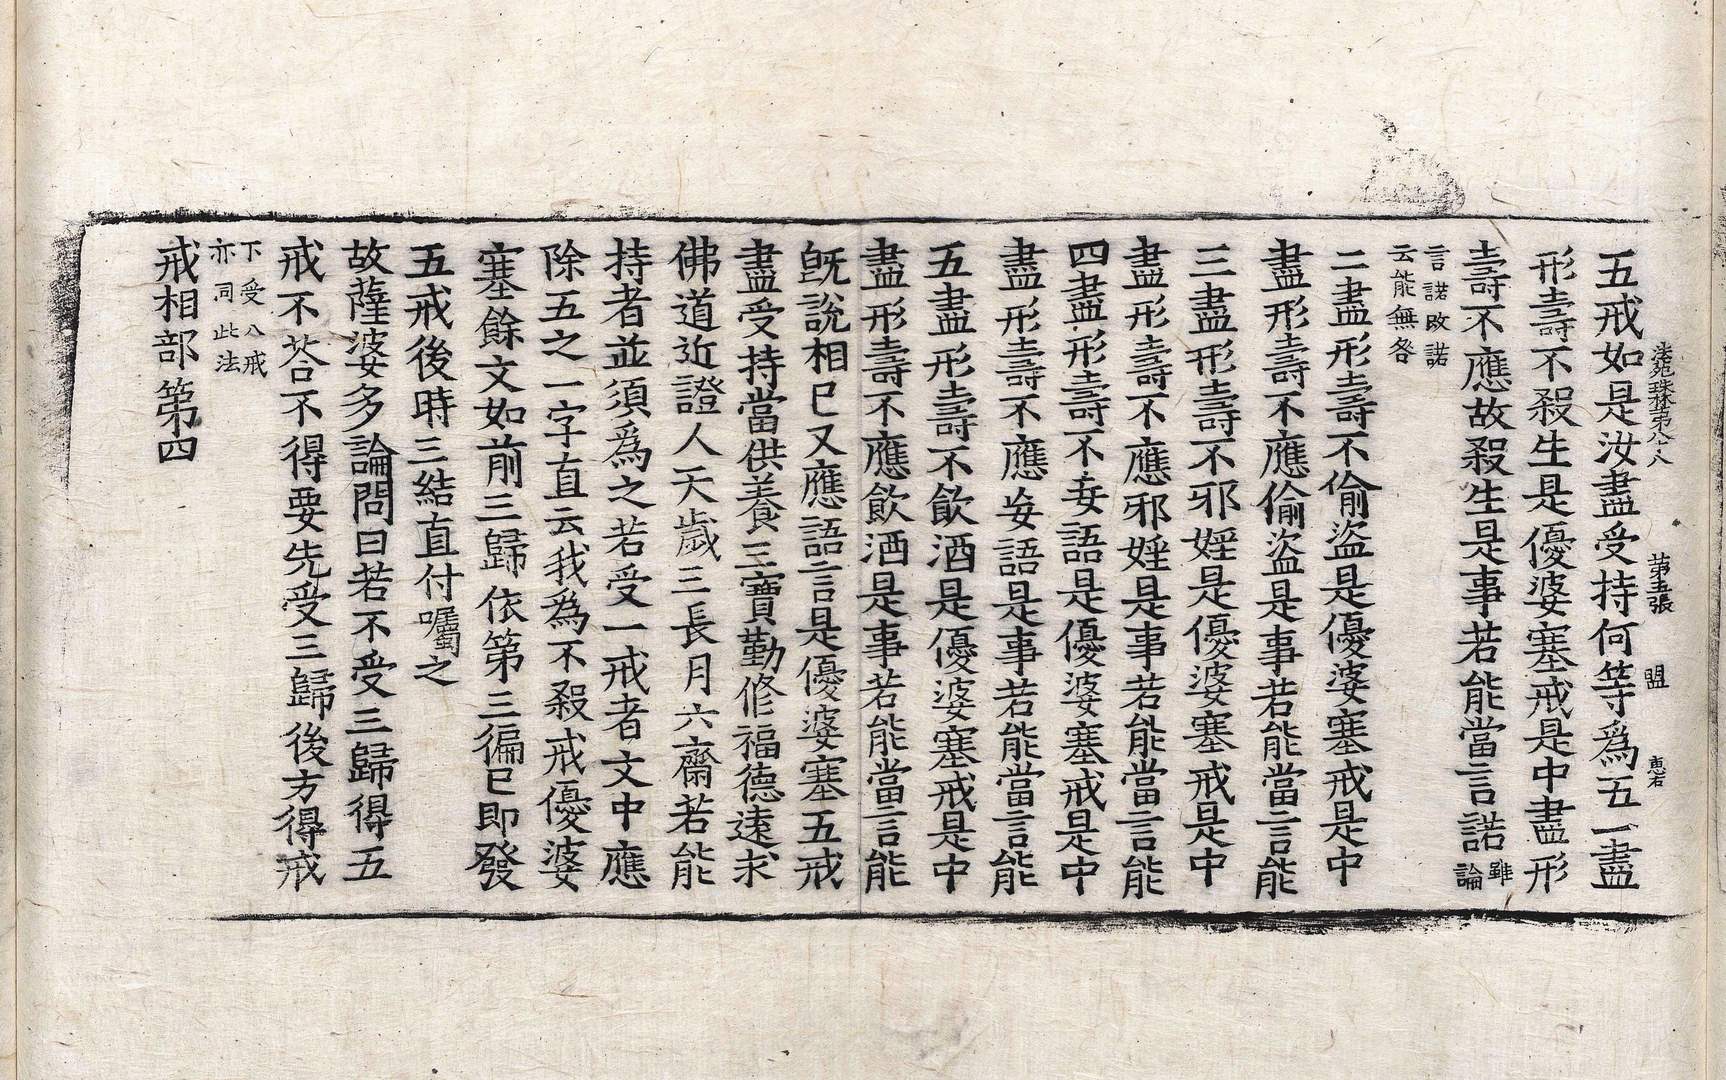 法苑珠林第八十八 第五張 盟 惠右
五戒如是汝盡受持何等爲五一盡
形壽不殺生是優婆塞戒是中盡形
壽不應故殺生是事若能當言諾雖論
言諾敀諾
云能無咎
二盡形壽不偷盜是優婆塞戒是中
盡形壽不應偷盜是事若能當言能
三盡形壽不邪婬是優婆塞戒是中
盡形壽不應邪婬是事若能當言能
四盡形壽不妄語是優婆塞戒是中
盡形壽不應妄語是事若能當言能
五盡形壽不飮酒是優婆塞戒是中
盡形壽不應飮酒是事若能當言能
旣說相已又應語言是優婆塞五戒
盡受持當供養三寶勤修福德遠求
佛道近證人天歲三長月六齋若能
持者並須爲之若受一戒者文中應
除五之一字直云我爲不殺戒優婆
塞餘文如前三歸依第三徧已即發
五戒後時三結直付囑之
故薩婆多論問曰若不受三歸得五
戒不荅不得要先受三歸後方得戒
下受八戒
亦同此法
戒相部第四